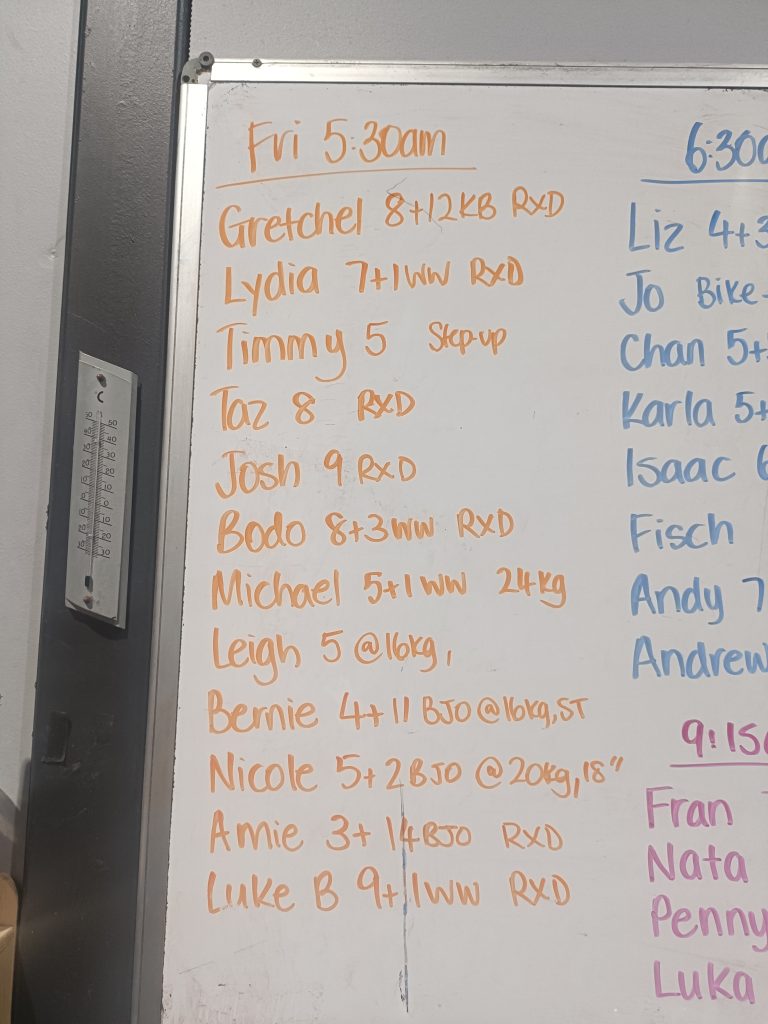 Fri 5:30am
Gretchel 8+12KB RXD
Lydia 7+1WW RXD
Timmy 5 Step-up
Taz 8 RXD
Josh 9 RXD
Bodo 8+3WW RXD
Michael 5+1WW 24kg
Leigh 5 @16kg,
Bernie 4+11 BJO @16kg, ST
Nicole 5+2 BJO @20kg, 18"
Amie 3+14 BJO RXD
Luke B 9+1WW RXD
6:30a
Liz 4+3
Jo Bike-
Chan 5+
Karla 5+
Isaac 6
Fisch
Andy 7
Andrew
9:15
Fran
Nata
Penny
Luka
°C